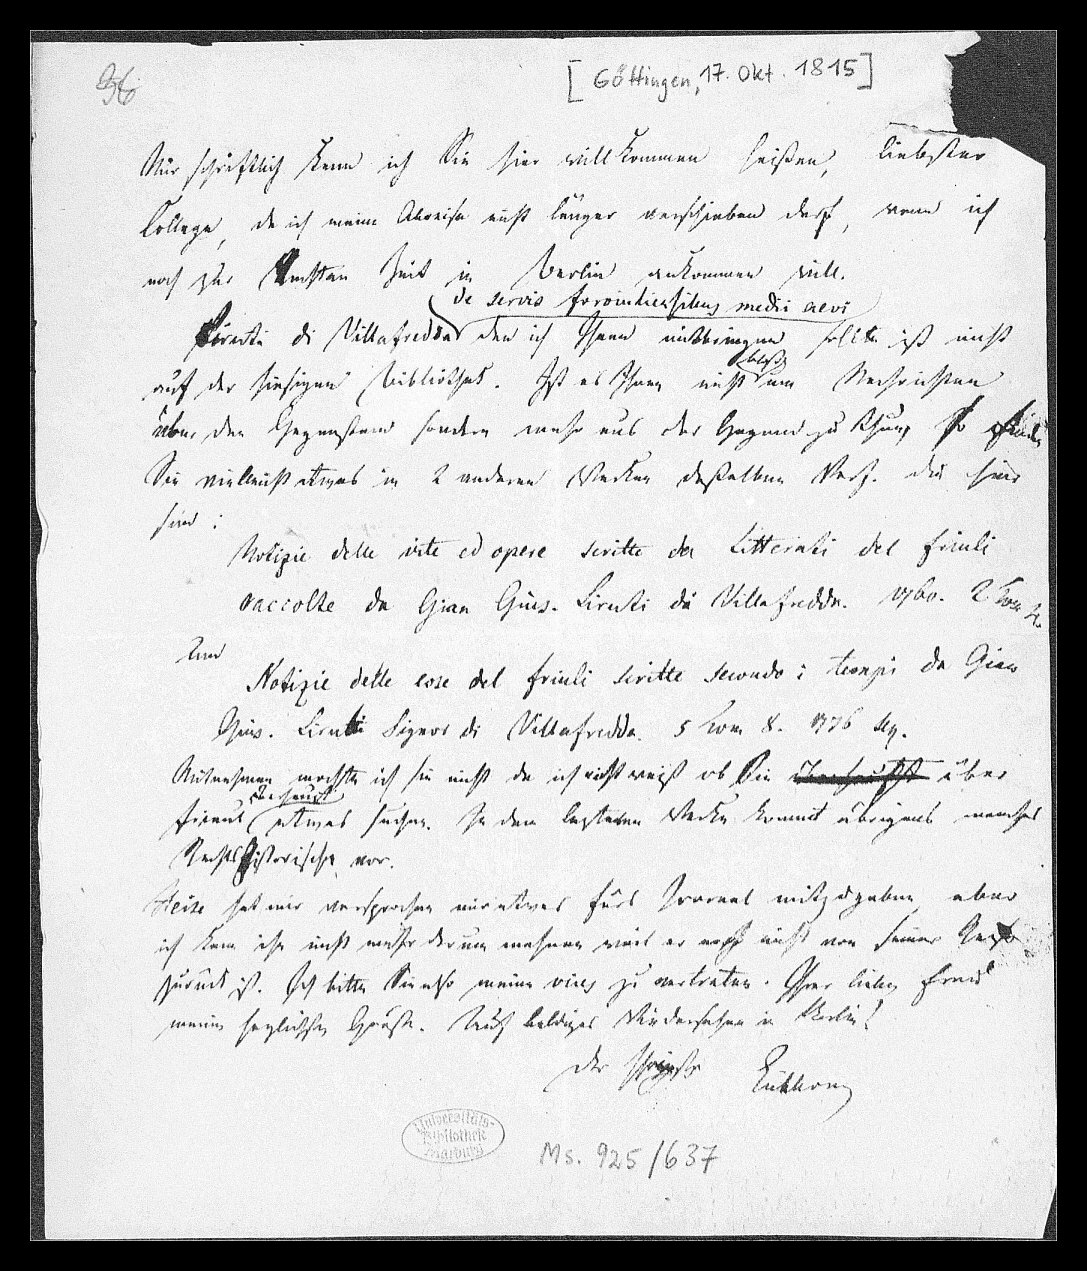 96
[Göttingen, 17. Okt. 1815]
Nur schriftlich kann ich Sie hier willkommen heißen, liebster
College, da ich meine Abreise nicht länger verschieben darf, wenn ich
noch zur Zeit in Berlin ankommen will.
de servis foroiuliensibus medii aevi
Liruti di Villafredda den ich Ihnen mitbringen sollte ist nicht
auf der hiesigen Bibliothek. Ist es Ihnen nicht bloß um Nachrichten
über den Gegenstand sondern mehr aus der Gegend zu thun, so finden
Sie vielleicht etwas in 2 anderen Werken deßelben Verf. die hier
sind:
Notizie delle vite ed opere scritte da Litterati del friuli
raccolte da Gian Gius. Liruti di Villafredda. 1760. 2 Tom 4.
und
Notizie delle cose del friuli scritte secondo i tempi da Gian
Gius. Liruti Signor di Villafredda. 5 Tom 8. 1776 sq.
Mitnehmen mochte ich sie nicht da ich nicht weiß ob Sie überhaupt über
überhaupt
Friaul etwas suchen. In dem letzteren Werke kommt übrigens manches
Rechtshistorische vor.
Heise hat mir versprochen mir etwas fürs Journal mitzugeben, aber
ich kann ihn nicht mehr darum mahnen weil er noch nicht von seiner Reise
zurück ist. Ich bitte Sie also meine vices zu vertreten. Ihrer lieben Frau
meine herzlichsten Grüße. Auf baldiges Wiedersehen in Berlin!
Der Ihrigste Eichhorn
Universitäts-
Bibliothek
Marburg
Ms. 925/637